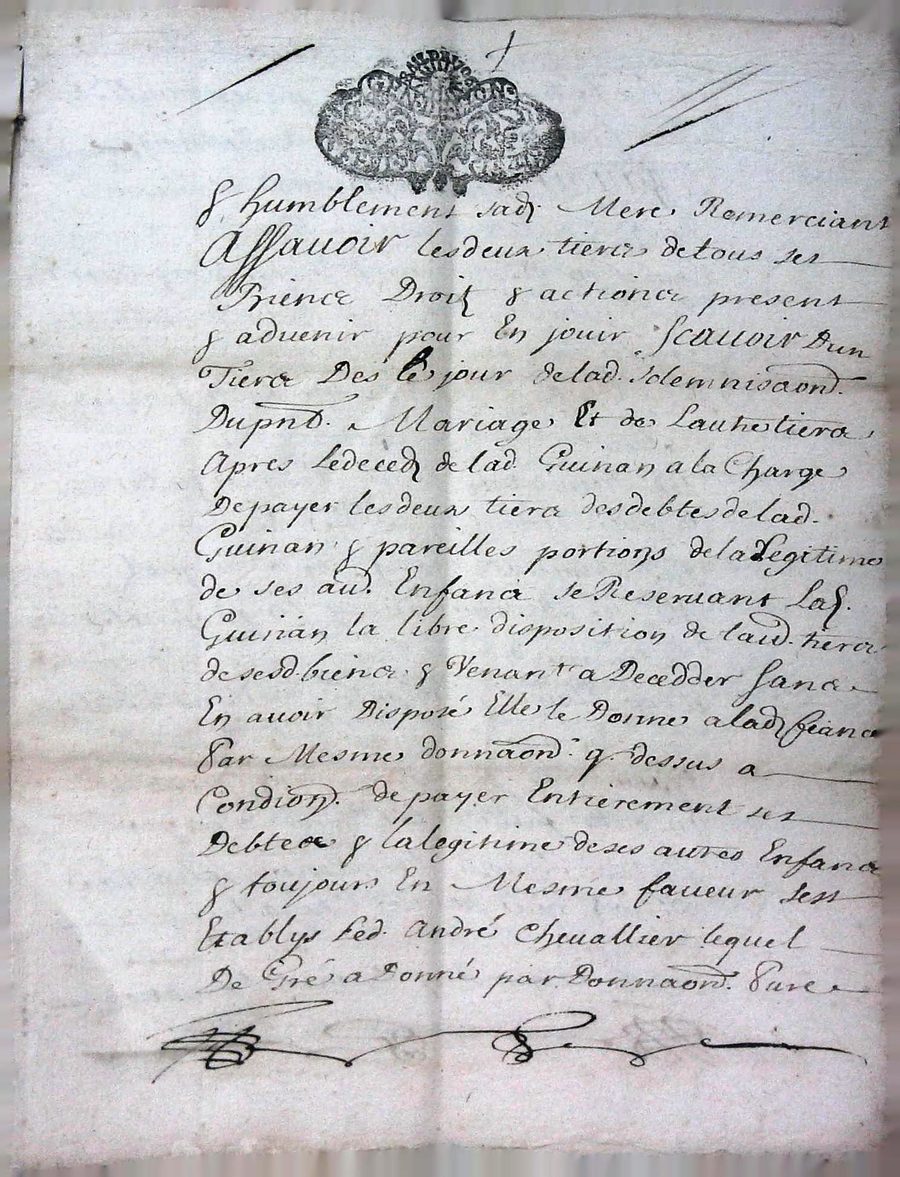 & humblement sad. Mere Remerciant
Assauoir les deux tiers de tous ses
Biens Droit & actions present
& advenir pour En jouir Scauoir Dun
Tiers Des le jour de lad. solemnisaon
Dupnt. Mariage Et de Lautre tiers
Apres le deced de lad. Guinan a la Charge
De payer les deux tiers des debtes de lad.
Guinan & pareilles portions de la Legitime
de ses au. Enfans se Reseruant Lad.
Guinan la libre disposition de laut. tiers
de sesd. biens & Venant a Decedder sans
En auoir Disposé Elle le Donne a lad. fiance
Par Mesme donnaon q. dessus a
Condion. de payer Entierement ses
Debtes & la legitime de ses autres Enfans
& toujours En Mesme faueur sest
Etablys Led. André Cheuallier lequel
De Gré a Donné par Donnaon. Pure